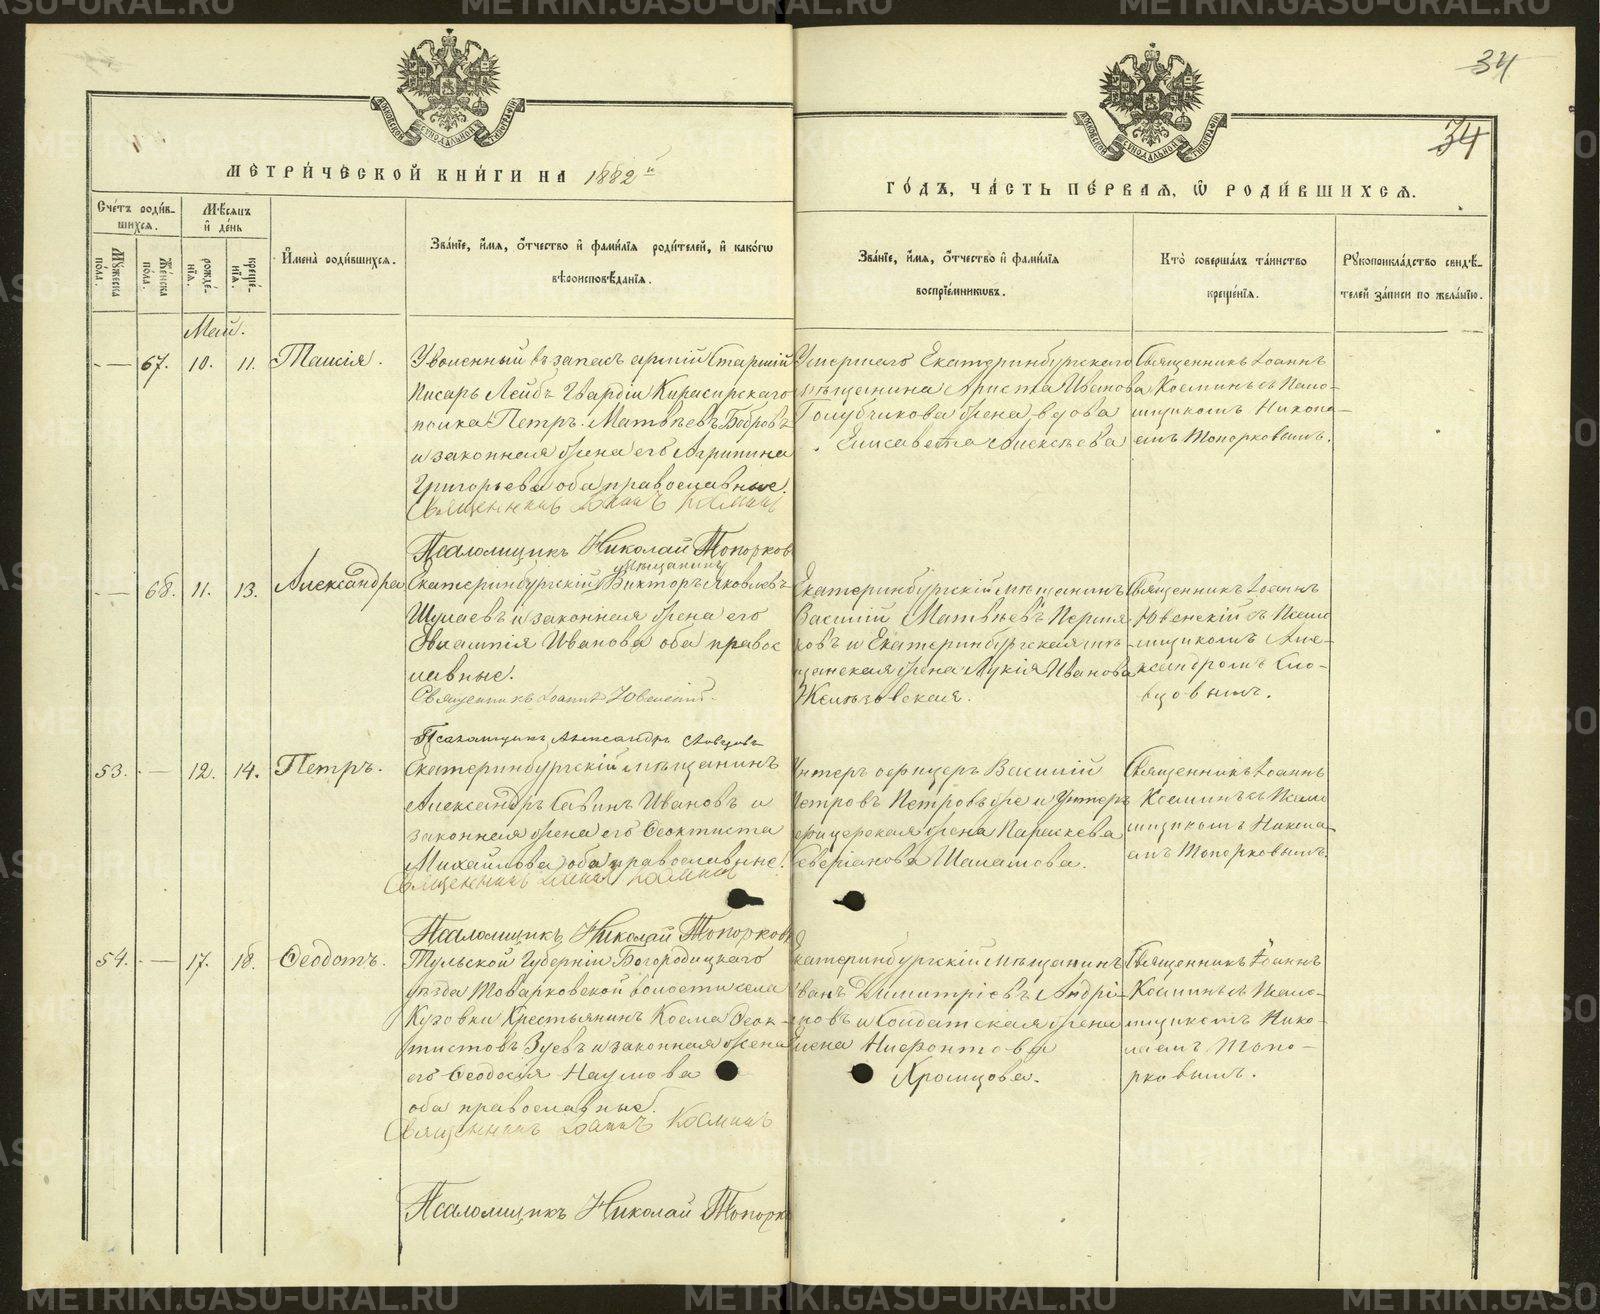 34
34
МЕТРИ́ЧЕСКОЙ КНИ́ГИ НА 1882й
ГО́ДЪ, ЧА́СТЬ ПЕ́РВАЯ, Ѡ РОДИ́ВШИХСЯ.
Сче́тъ роди́в-
шихся.
Мѣ́сяцъ
и день
Мꙋжеска
по́ла.
Же́нска
пола.
рожде́-
нїя.
креще́-
нїя.
Имена̀ роди́вшихся.
Зва́нїе, и́мя, о́тчество и фами́лїя роди́телей, и како́гѡ
вѣроисповѣ́данїя.
Зва́нїе, и́мя, о́тчество и фами́лїя
воспрїе́мникѡвъ.
Кто̀ соверша́лъ та́инство
креще́нїя.
Рꙋкоприкла́дство свидѣ́-
телей за́писи по жела́нїю.
Май.
— 67. 10. 11. Таисія.
Уволенный въ запасъ армій Старшій
Писарь Лейбъ Гвардіи Кирасирскаго
полка Петръ Матвѣевъ Бобровъ
и законная жена его Агрипина
Григорьева оба православные.
Священникъ Іоаннъ Косминъ
Псаломщикъ Николай Топорков
Умершаго Екатеринбургскаго
мѣщанина Ариста Иванова
Голубчикова жена вдова
Елисавета Алексѣева
Священникъ Іоаннъ
Косминъ съ Псало-
мщикомъ Никола-
емъ Топорковымъ.
— 68. 11. 13. Александра
мѣщанинъ
Екатеринбургскій Викторъ Яковлевъ
и законная жена его
Ивановa оба правос
лавные.
Священникъ Іоаннъ Ювенскій.
Псаломщикъ Александръ Словцовъ
Екатеринбургскій мѣщанинъ
Василій Матвѣевъ Перша
ковъ и Екатеринбургская мѣ
щанская жена Лукія Иванова
Желѣзовская.
Священникъ Іоаннъ
Ювенскій съ Псало
мщикомъ Але-
ксандромъ Сло-
вцовымъ.
53. — 12. 14. Петръ.
Екатеринбургскій мѣщанинъ
Александръ Савинъ Ивановъ и
законная жена его Ѳеоктиста
Михайлова оба православные.
Священникъ Іоаннъ Косминъ
Псаломщикъ Николай Топорковъ
Унтеръ офицеръ Василій
Петровъ Петровъ же и Унтеръ
офицерская жена Параскева
Северіанова Шаламова.
Священникъ Іоаннъ
Косминъ съ Псало
мщикомъ Никола-
емъ Топорковымъ.
54. — 17. 18. Ѳеодотъ.
Тульской Губерніи Богородицкаго
уѣзда Товарковской волости села
Кузовки Крестьянинъ Косма Ѳеок-
тистовъ Зуевъ и законная жена
его Ѳеодосія Наумова
оба православные.
Священникъ Іоаннъ Косминъ
Псаломщикъ Николай Топорко
Екатеринбургскій мѣщанинъ
Иванъ Димитріевъ Андрі-
яновъ и Солдатская жена
Елена Нифонтова
Хромцова.
Священникъ Іоаннъ
Косминъ съ Псало-
мщикомъ Нико-
лаемъ Топо-
рковымъ.
METRIKI.GASO-URAL.RU